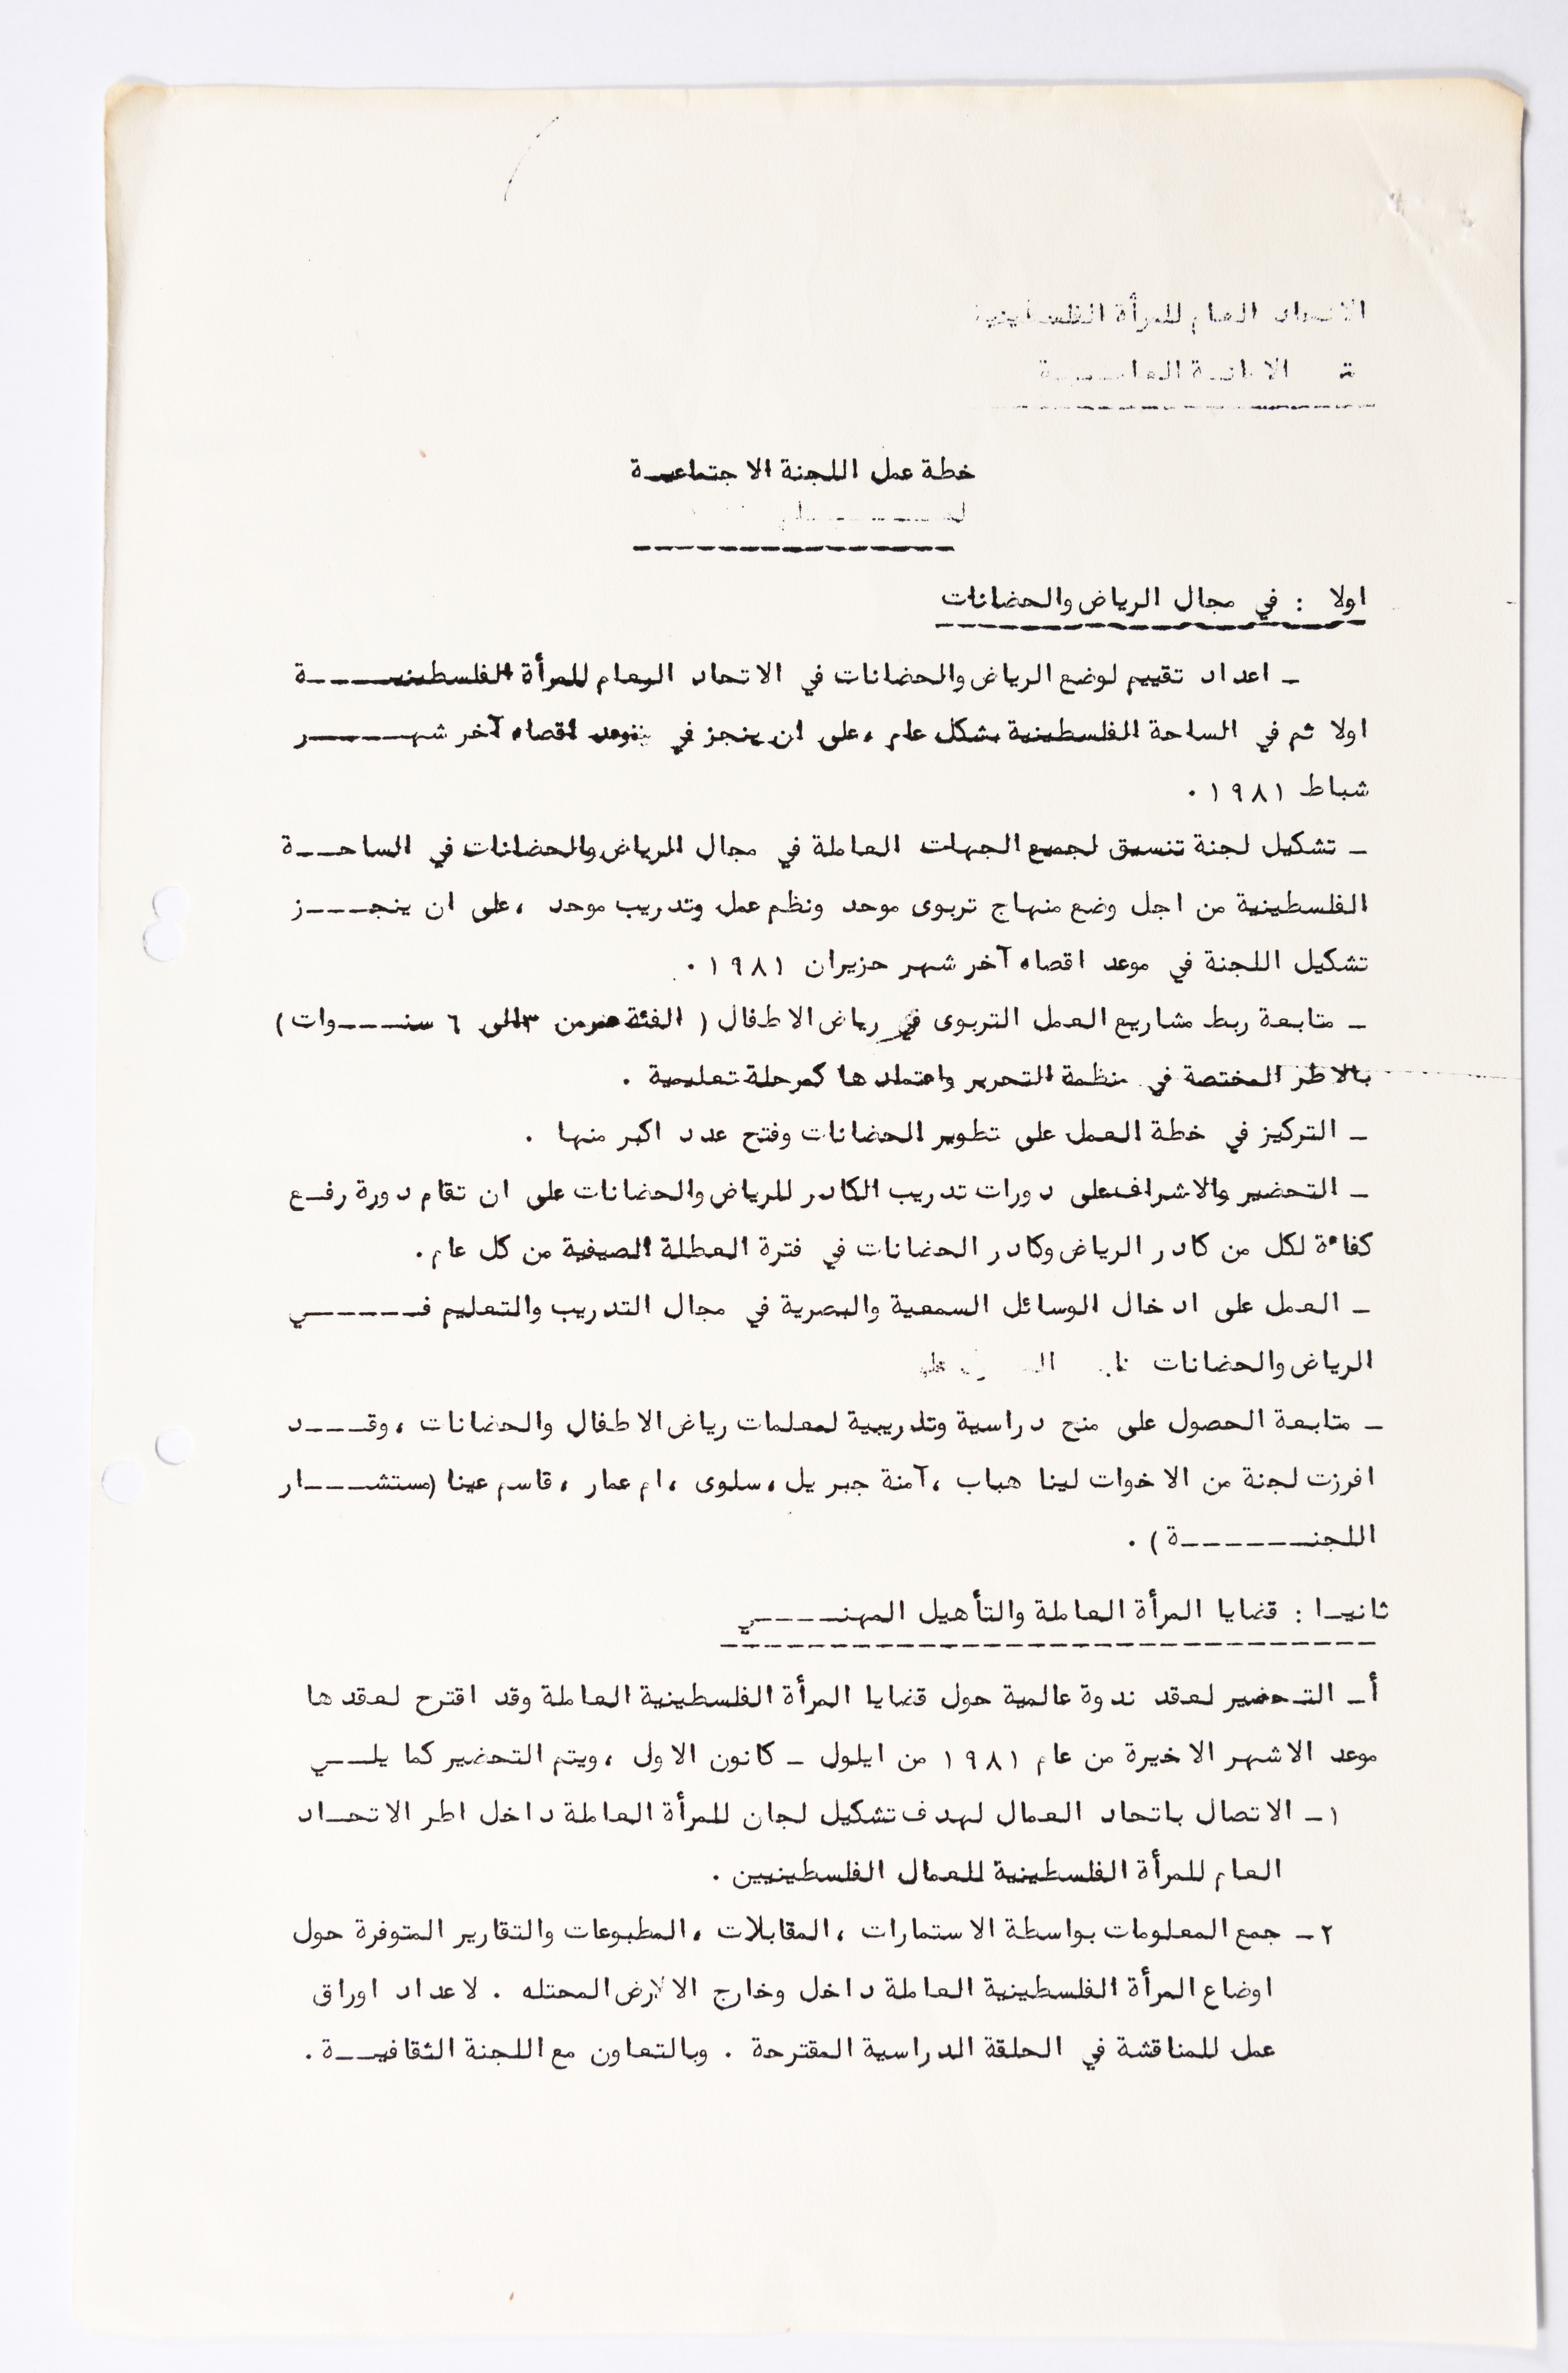 الاتحاد العام للمرأة الفلسطينية
الامانة العامـــة
خطة عمل اللجنة الاجتماعيــة
اولا : في مجال الرياض والحضانات
ـ اعداد تقييم لوضع الرياض والحضانات في الاتحاد العام للمرأة الفلسطينيــــة
اولا ثم في الساحة الفلسطينية بشكل عام ، على ان ينجز في موعد اقصاه آخر شهــــر
شباط ١٩٨١ .
ـ تشكيل لجنة تنسيق لجميع الجهات العاملة في مجال الرياض والحضانات في الساحــة
الفلسطينية من اجل وضع منهاج تربوى موحد ونظم عمل وتدريب موحد ، على ان ينجــــز
تشكيل اللجنة في موعد اقصاه آخر شهر حزيران ١٩٨١ .
ـ متابعة ربط مشاريع العمل التربوى في رياض الاطفال ( الفئة من ٣ الى ٦ سنــــوات )
بالاطر المختصة في منظمة التحرير واعتمادها كمرحلة تعليمية .
ـ التركيز في خطة العمل على تطوير الحضانات وفتح عدد اكبر منها .
ـ التحضير والاشراف على دورات تدريب الكادر للرياض والحضانات على ان تقام دورة رفــع
كفاءة لكل من كادر الرياض وكادر الحضانات في فترة العطلة الصيفية من كل عام .
ـ العمل على ادخال الوسائل السمعية والبصرية في مجال التدريب والتعليم فــــــي
الرياض والحضانات
ـ متابعة الحصول على منح دراسية وتدريبية لمعلمات رياض الاطفال والحضانات ، وقــــد
افرزت لجنة من الاخوات لينا هباب ، آمنة جبريل ، سلوى ، ام عمار ، قاسم عينا (مستشــــار
اللجنـــــــة ) .
ثانيـا : قضايا المرأة العاملة والتأهيل المهنــــي
أ ـ التـحضير لعقد ندوة عالمية حول قضايا المرأة الفلسطينية العاملة وقد اقترح لعقدها
موعد الاشهر الاخيرة من عام ١٩٨١ من ايلول ـ كانون الاول ، ويتم التحضير كما يلـــي
١ ـ الاتصال باتحاد العمال لهدف تشكيل لجان للمرأة العاملة داخل اطر الاتحــاد
العام للمرأة الفلسطينية للعمال الفلسطينيين .
٢ ـ جمع المعلومات بواسطة الاستمارات ، المقابلات ، المطبوعات والتقارير المتوفرة حول
اوضاع المرأة الفلسطينية العاملة داخل وخارج الارض المحتله . لاعداد اوراق
عمل للمناقشة في الحلقة الدراسية المقترحة . وبالتعاون مع اللجنة الثقافيــة .